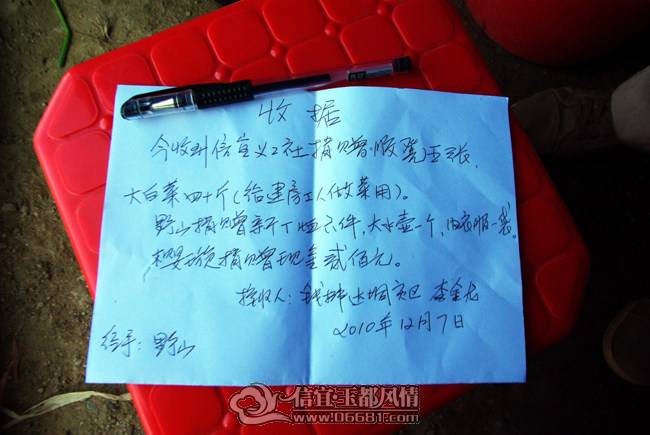 收据
今收到信宜义工社捐赠 张.
大白菜四十斤(给建房工人做菜用)。
野山捐赠 件,大水壶一个,内衣服一袋。
捐赠现金贰佰元。
接收人: 钱排达垌 李金龙
2010年12月7日
经手:野山
信宜·玉都风情
www.06681.com